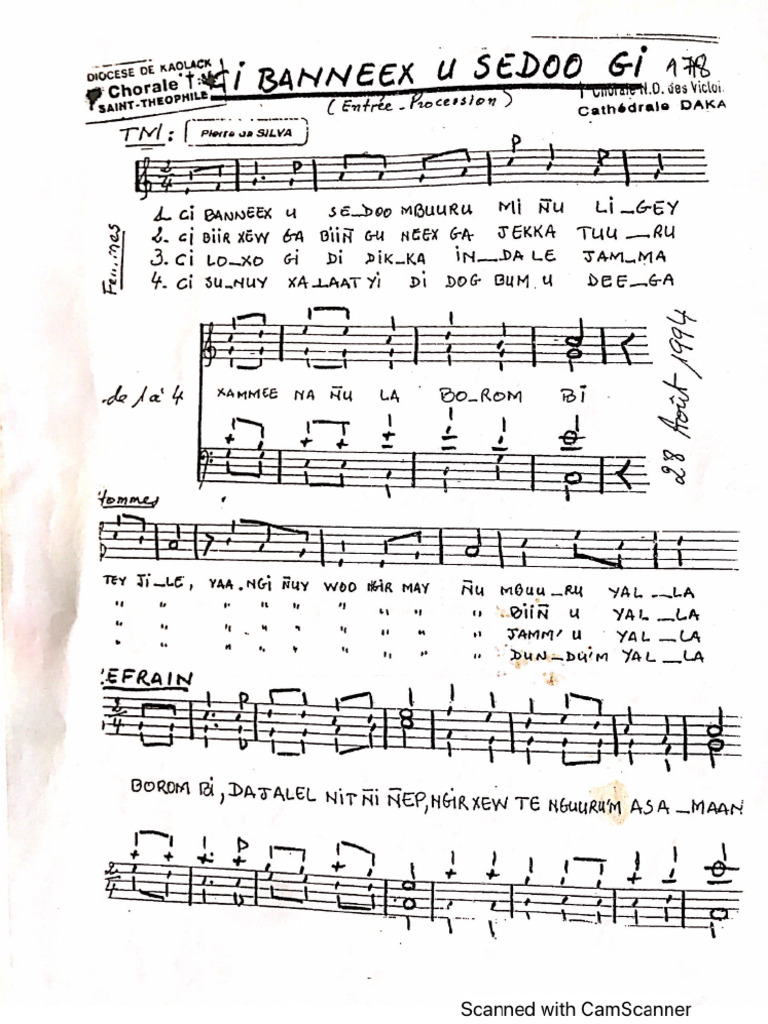 DIOCESE DE KAOLACK
Chorale
SAINT-THEOPHILE
Gi BANNEEX U SEDOO Gi 178
(Entrée-Procession)
Chorale N.D. des Victoi
Cathédrale DAKA
TM: Pierre da SILVA
2
4
Femmes
1. Ci BANNEEX U SE_DOO MBUURU Mi ÑU Li_GEY
2. Ci BiiR XEW GA BiiÑ GU NEEX GA JEKKA TUU_RU
3. Ci LO_XO Gi Di DiK_KA iN_DALE JAM_MA
4. Ci SU_NUY XA_LAAT Yi Di DOG BUM U DEE_GA
28 Août 1994
de 1 à 4 XAMMEE NA ÑU LA BO_ROM Bi
Hommes
TEY Ji_LE, YAA.NGi ÑUY WOO NGiR MAY ÑU MBUU_RU YAL_LA
" " " " " " " " " BiiÑ U YAL_LA
" " " " " " " " " JAMM' U YAL_LA
" " " " " " " " " DUN_DU'M YAL_LA
EFRAIN
2
4
BOROM Bi, DAJALEL NiT Ñi ÑEP, NGiR XEW TE NGUURU'M ASA_MAAN
2
4
Scanned with CamScanner